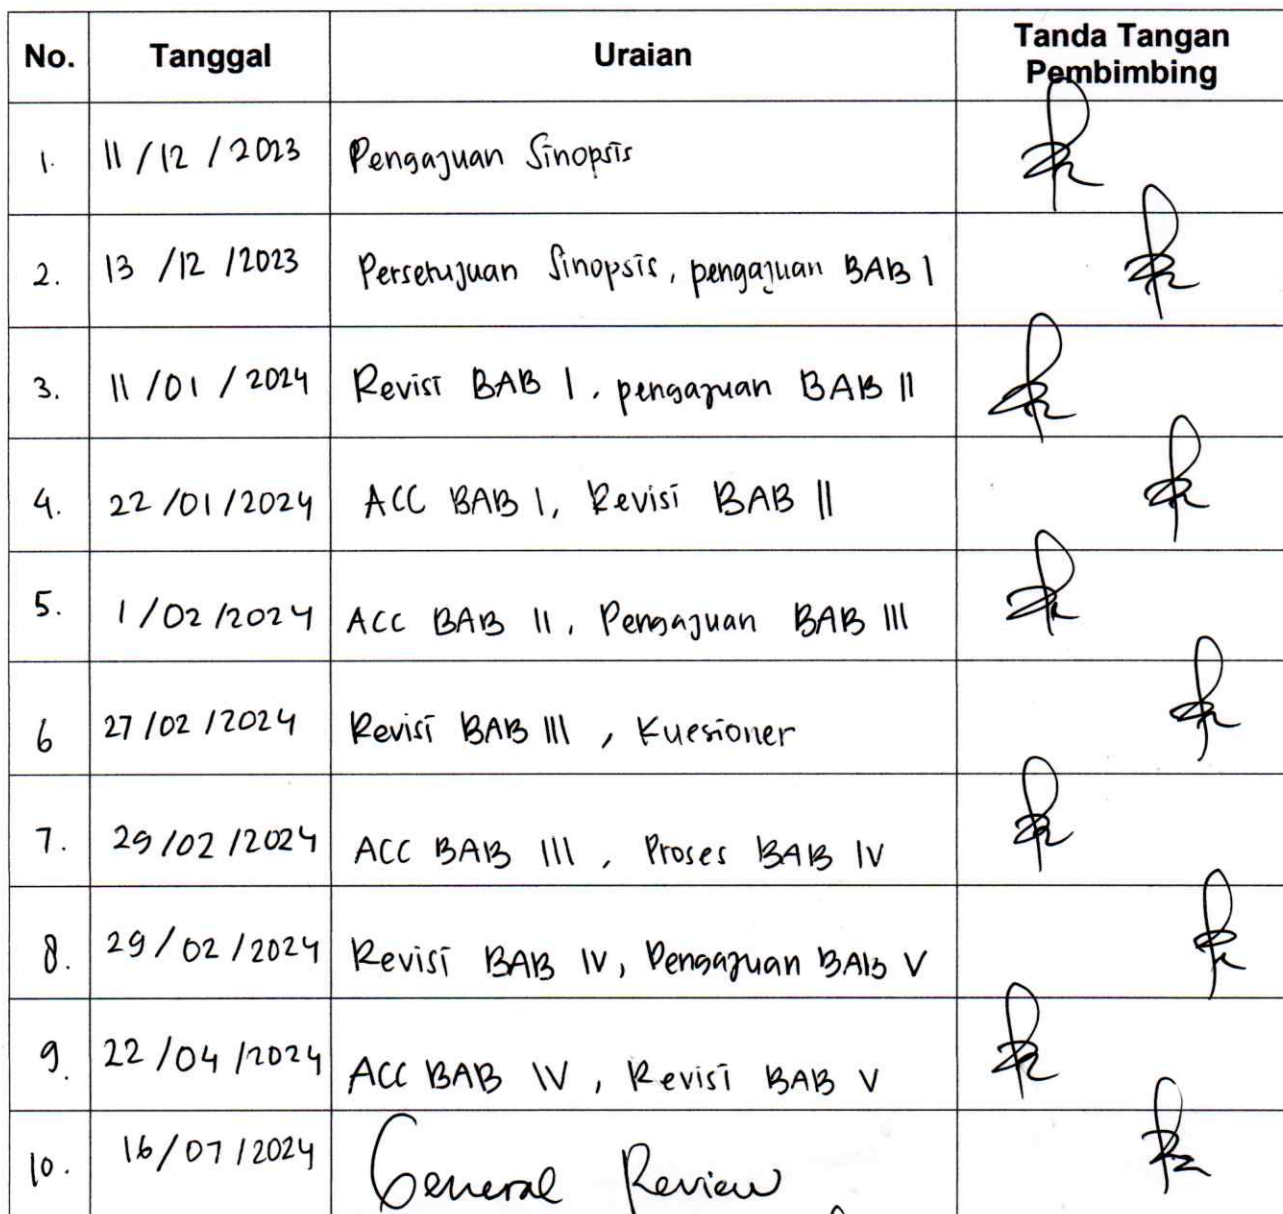 No. Tanggal Uraian Tanda Tangan Pembimbing
1. 11/12/2023 Pengajuan Sinopsis
2. 13/12/2023 Persetujuan Sinopsis, pengajuan BAB I
3. 11/01/2024 Revisi BAB I, pengajuan BAB II
4. 22/01/2024 ACC BAB I, Revisi BAB II
5. 1/02/2024 ACC BAB II, Pengajuan BAB III
6 27/02/2024 Revisi BAB III, Kuesioner
7. 29/02/2024 ACC BAB III, Proses BAB IV
8. 29/02/2024 Revisi BAB IV, Pengajuan BAB V
9. 22/04/2024 ACC BAB IV, Revisi BAB V
10. 16/07/2024 General Review